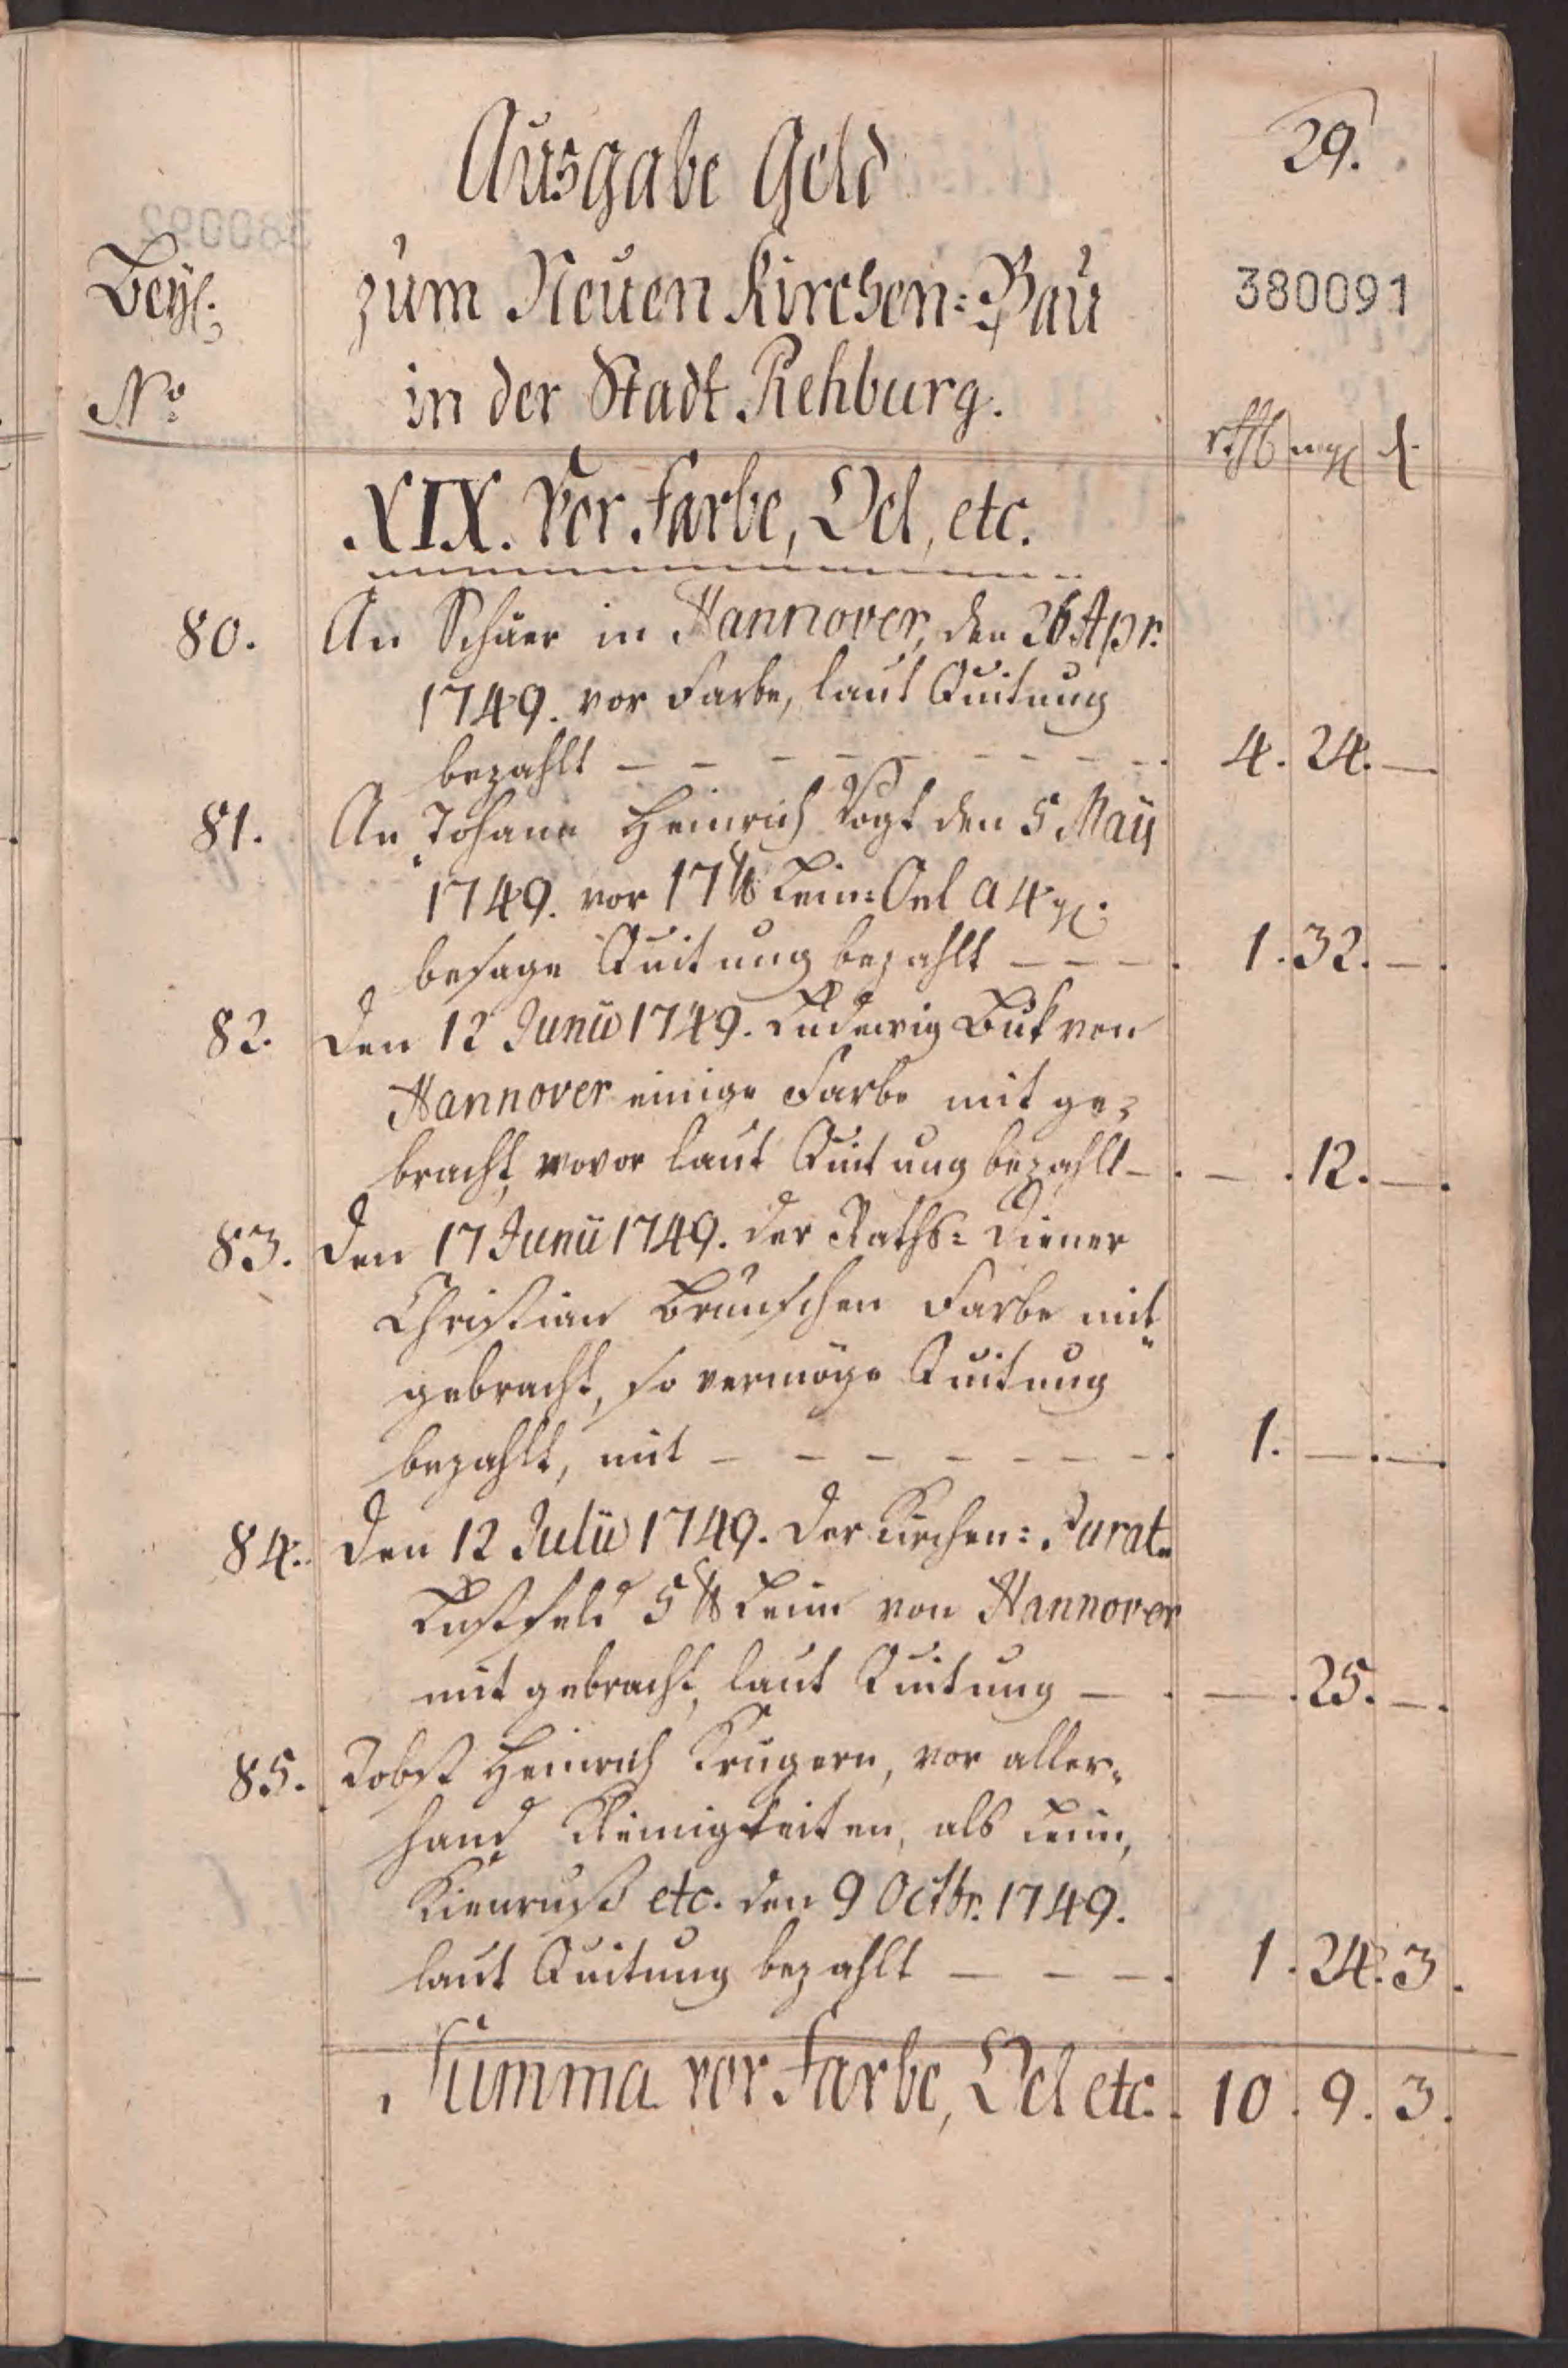 29.
Ausgabe Geld
380091
Beyl. zum Neuen Kirchen-Bau
No in der Stadt Rehburg.
rthl mg d
XIX. Vor Farbe, Oel, etc.
80. An Schüer in Hannover, den 26 Apr.
1749. vor Farbe, laut Quitung
bezahlt - - - - - - - - 4. 24. —
81. An Johann Heinrich Vogt den 5 May
1749. vor 17 ℔ Lein-Oel a 4 gl.
besage Quitung bezahlt - - - 1. 32. —
82. Den 12 Junii 1749. Ludewig Buk von
Hannover einige Farbe mit ge-
bracht, wovor laut Quitung bezahlt - — . 12. —
83. Den 17 Junii 1749. der Raths-Diener
Christian Brünschen Farbe mit
gebracht, so vermöge Quitung
bezahlt, mit - - - - - - - 1. — . —
84. Den 12 Julii 1749. der Kirchen-Jurat
Lustfeld 5 ℔ Leim von Hannover
mit gebracht, laut Quitung — — . 25. —
85. Jobst Heinrich Krügern, vor aller-
hand Kleinigkeiten, als Leim,
Kienruß etc. den 9 Octbr. 1749.
laut Quitung bezahlt - - - 1. 24. 3.
Summa vor Farbe, Oel etc. 10. 9. 3.